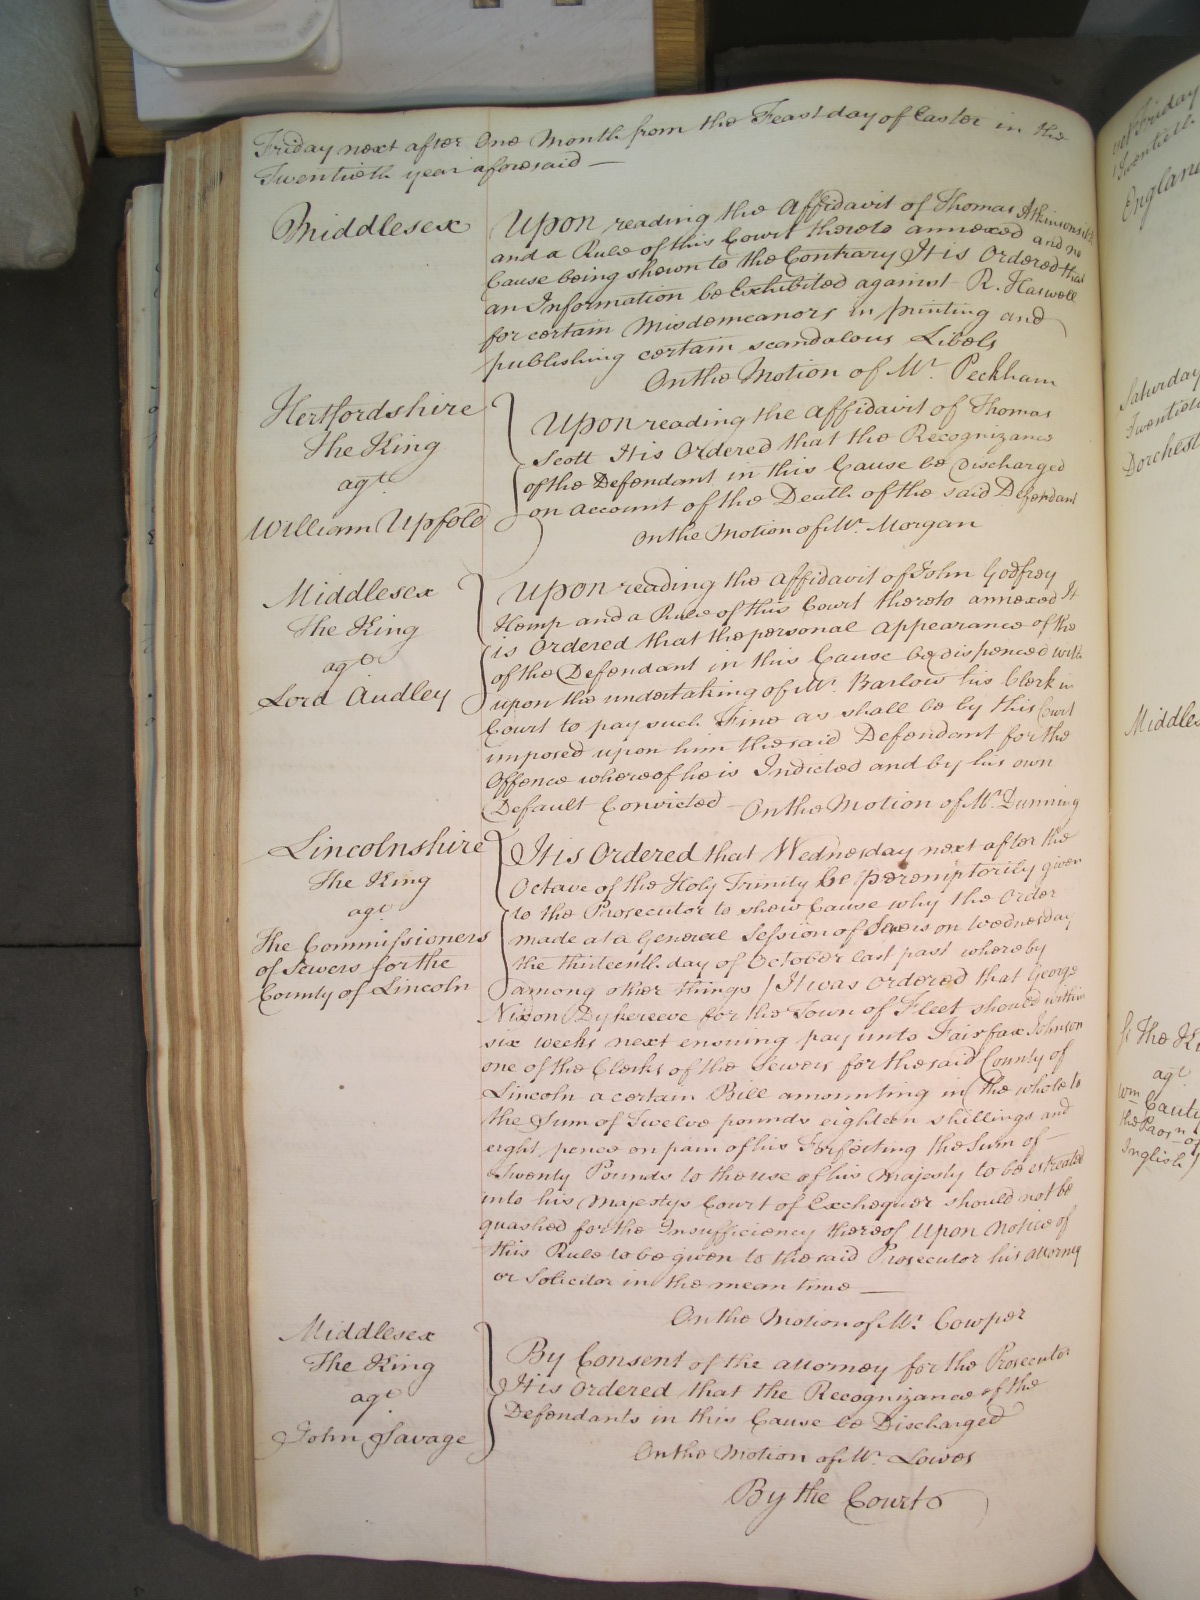 Friday next after One Month from the Feast day of Easter in the
Twentieth year aforesaid —
Middlesex
Upon reading the Affidavit of Thomas
and a Rule of this Court thereto annexed and no
Cause being shewn to the Contrary It is Ordered that
an Information be Exhibited against R. Haswell
for certain Misdemeanors in printing and
publishing certain scandalous Libels
On the Motion of Mr. Peckham
Hertfordshire
The King
agt.
William Upfold
Upon reading the Affidavit of Thomas
Scott It is Ordered that the Recognizance
of the Defendant in this Cause be Discharged
on account of the Death of the said Defendant
On the Motion of Mr. Morgan
Middlesex
The King
agt.
Lord Audley
Upon reading the Affidavit of John Godfrey
Kemp and a Rule of this Court thereto annexed It
is Ordered that the personal appearance of the
of the Defendant in this Cause be dispenced with
upon the undertaking of Mr. Barlow his Clerk in
Court to pay such Fine as shall be by this Court
imposed upon him the said Defendant for the
Offence whereof he is Indicted and by his own
Default Convicted — On the Motion of Mr. Dunning
Lincolnshire
The King
agt.
The Commissioners
of Sewers for the
County of Lincoln
It is Ordered that Wednesday next after the
Octave of the Holy Trinity be peremptorily given
to the Prosecutor to shew Cause why the Order
made at a General Session of Sewers on Wednesday
the thirteenth day of October last past whereby
among other things / It was ordered that George
Nixon Dykereeve for the Town of Fleet should within
six weeks next ensuing pay unto Fairfax Johnson
one of the Clerks of the Sewers for the said County of
Lincoln a certain Bill amounting in the whole to
the Sum of Twelve pounds eighteen shillings and
eight pence on pain of his Forfeiting the Sum of —
Twenty Pounds to the use of his Majesty to be estreated
into his Majestys Court of Exchequer should not be
quashed for the Insufficiency thereof Upon Notice of
this Rule to be given to the said Prosecutor his attorney
or Solicitor in the mean time —
On the Motion of Mr. Cowper
Middlesex
The King
agt.
John Savage
By Consent of the attorney for the Prosecutor
It is Ordered that the Recognizance of the
Defendants in this Cause be Discharged
On the Motion of Mr. Lowes
By the Court
Friday
Twentieth
England
Saturday
Twentieth
Dorchest
Middles
The Ki
agt.
Wm Caut
Inglish